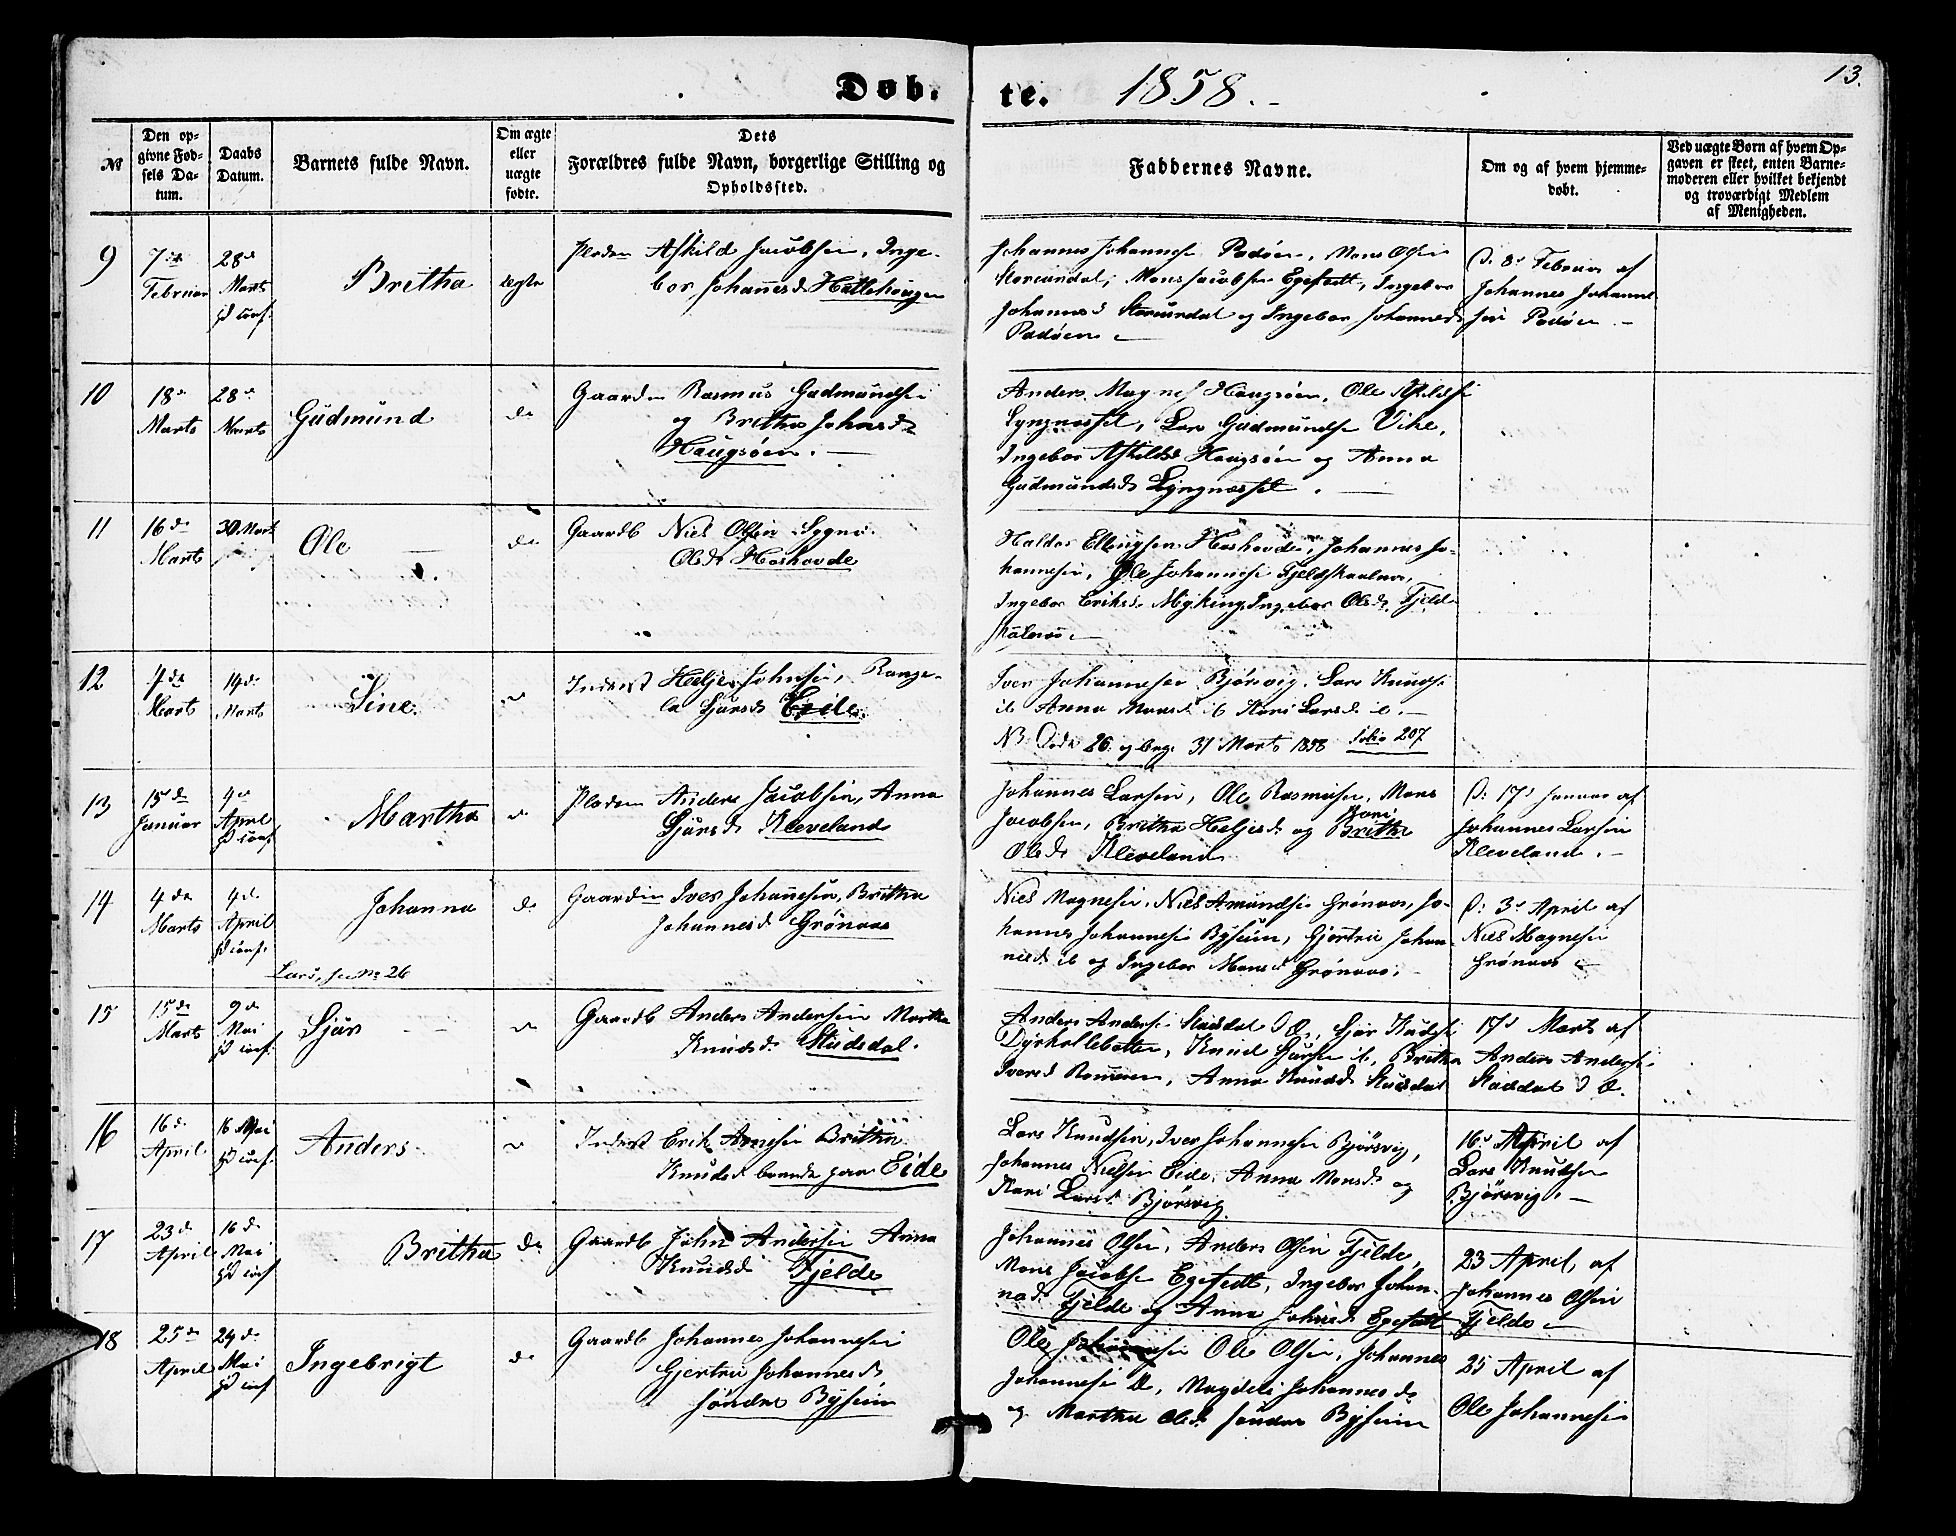 Døb.
te. 1858.
13.
№
Den op-
givne Fød-
sels Da-
tum.
Daabs
Datum.
Barnets fulde Navn.
Om ægte
eller
uægte
fødte.
Dets
Forældres fulde Navn, borgerlige Stilling og
Opholdssted.
Faddernes Navne.
Om og af hvem hjemme-
døbt.
Ved uægte Børn af hvem Op-
gaven er skeet, enten Barne-
moderen eller hvilket bekjendt
og troværdigt Medlem
af Menigheden.
9
7de
Februar
28de
Marts
Britha
ægte
Pladsm Askild Jacobsen, Inge-
bor Johannesd Hettehaugen
Johannes Johannese Padøen, Mons Olsen
Mons Jacobsen Egefedt, Ingebor
Johannesd og Ingebor Johannesd
Padøen
D. 8d Februar af
Johannes Johanne-
sen Padøen
10
18de
Marts
28de
Marts
Gudmund
do
Gaardm Rasmus Gudmundsen
og Britha Johnsd
Haugsøen.
Anders Magnes Haugsøen, Ole
Lyngnesset, Lars Gudmundse Vike,
Ingebor Askildsd Haugsøen og Anna
Gudmundsd Lyngnesset.
11
16de
Marts
30 Mart
Ole
do
Gaardb Niels Olsen Sygne
Olsd Hoshovde
Haldor Ellingsen Hoshovde, Johannes Jo-
hannesen, Ole Johannese Fjeldskaalnes,
Ingebor Eriksd Myking, Ingebor Olsd Fjeld-
12
4de
Marts
14de
Marts
Sine.
Inderst Helje Johnsen, Range-
la Sjursd Eide.
Iver Johannesen Bjørsvig, Lars Knuds
ib Anna Monsd ib Kari Larsd ib.
NB Døde 26 og begr 31 Marts 1858 folio 207
13
15de
Januar
4de
April
Martha
do
Pladsm Anders Jacobsen, Anna
Sjursd Kleveland
Johannes Larsen, Ole Rasmusen, Mons
Jacobsen, Britha Heljesd og Kari
Britha
Olsd Kleveland
D. 17d Januar af
Johannes Larsen
Kleveland.
14
4de
Marts
4de
April
Johanna
do
Gaardm Iver Johannesen, Britha
Johannesd Grønaas
Niels Magnesen, Niels Amundsen Grønaas, Jo-
hannes Johannesen Bysheim, Gjertru Johan-
nesd ib og Ingebor Monsd Grønaas.
D. 3d April af
Niels Magnesen
Grønaas
Lars, see No 26
15
15de
Marts
9de
Mai
Sjur
Gaardb Anders Andersen Martha
Knudsd Studsdal.
Anders Anderse Stusdal Sjur Knudse
Dyrkollebotten, Knud Sjurse ib, Britha
Iversd Anna Knudsd Stusdal
17d Marts af
Anders Anderse
Stusdal
16
16de
April
16 Mai
Anders
Inderst Erik Arnesen Britha
Knudsd boende paa Eide
Lars Knudsen, Iver Johannesen Bjørsvig,
Johannes Nielsen Eide, Anna Monsd og
Kari Larsd Bjørsvig
16d April af
Lars Knudsen
Bjørsvig.
17
23de
April
16de
Mai
Britha
do
Gaardb John Andersen Anna
Knudsd Fjelde
Johannes Olsen, Anders Olsen Fjelde,
Mons Jacobse Egefedt, Ingebor Johan-
nesd Fjelde og Anna Johnsd Egefedt
23 April, af
Johannes Olsen
Fjelde
18
25de
April
24de
Mai
Ingebrigt
do
Gaardb Johannes Johannesen
Gjertru Johannesd
søndre Bysheim
Ole Johannesen Ole Olsen, Johannes
Johannesen Magdeli Johannesd
og Martha Olsd søndre Bysheim
25 April af
Ole Johannesen